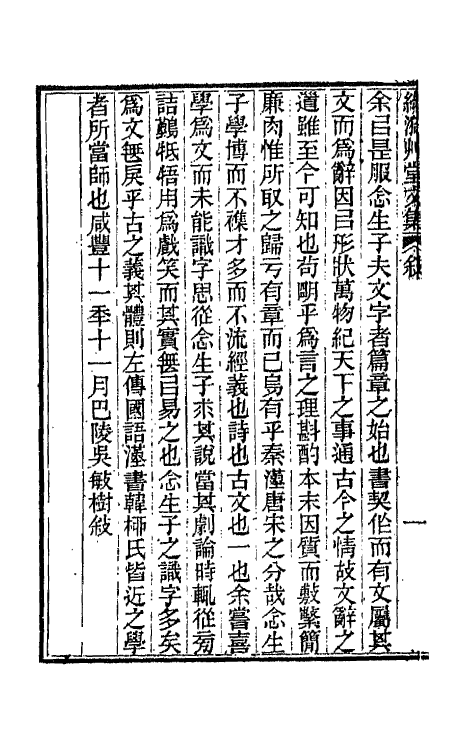 綠漪艸堂文集 敘 一
余㠯是服念生子夫文字者篇章之始也書契作而有文屬其
文而爲辭因㠯形狀萬物紀天下之事通古今之情故文辭之
道雖至今可知也苟朙乎爲言之理斟酌本末因質而敷緐簡
廉肉惟所取之歸亏有章而已烏有乎秦漢唐宋之分哉念生
子學博而不襍才多而不流經義也詩也古文也一也余嘗喜
學爲文而未能識字思從念生子求其說當其劇論時輒從旁
詰鷄牴牾用爲戲笑而其實無㠯易之也念生子之識字多矣
爲文無戾乎古之義其體則左傳國語漢書韓桺氏皆近之學
者所當師也咸豐十一年十一月巴陵吳敏樹敘